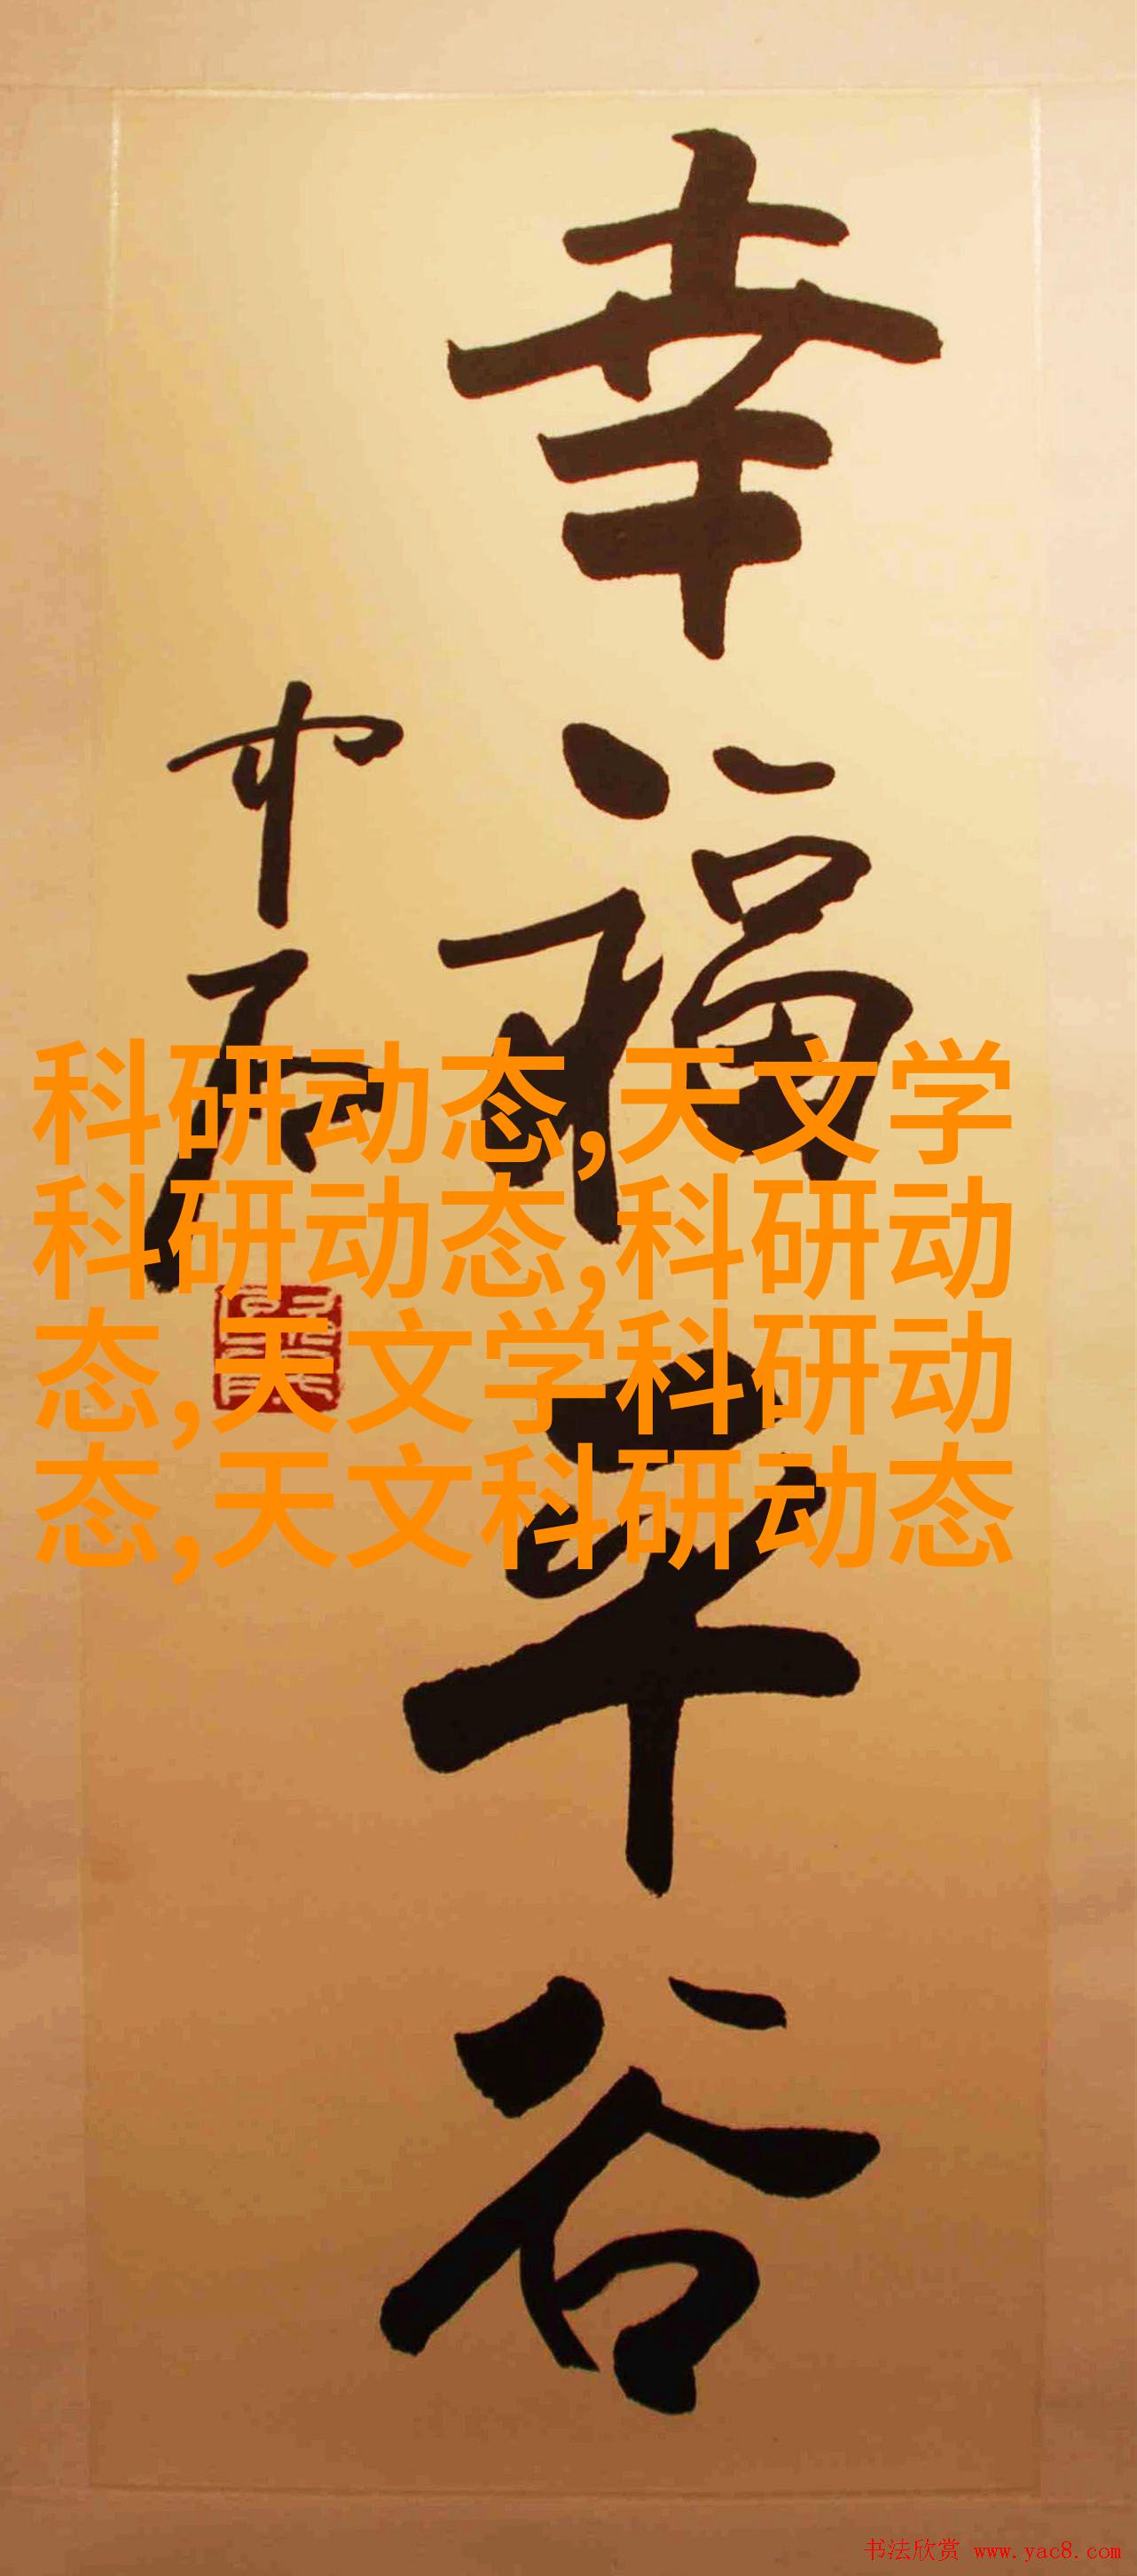 幸福平谷
中石
科研动态,天文学
科研动态,科研动
态,天文学科研动
态,天文科研动态
书法欣赏 www.yac8.com